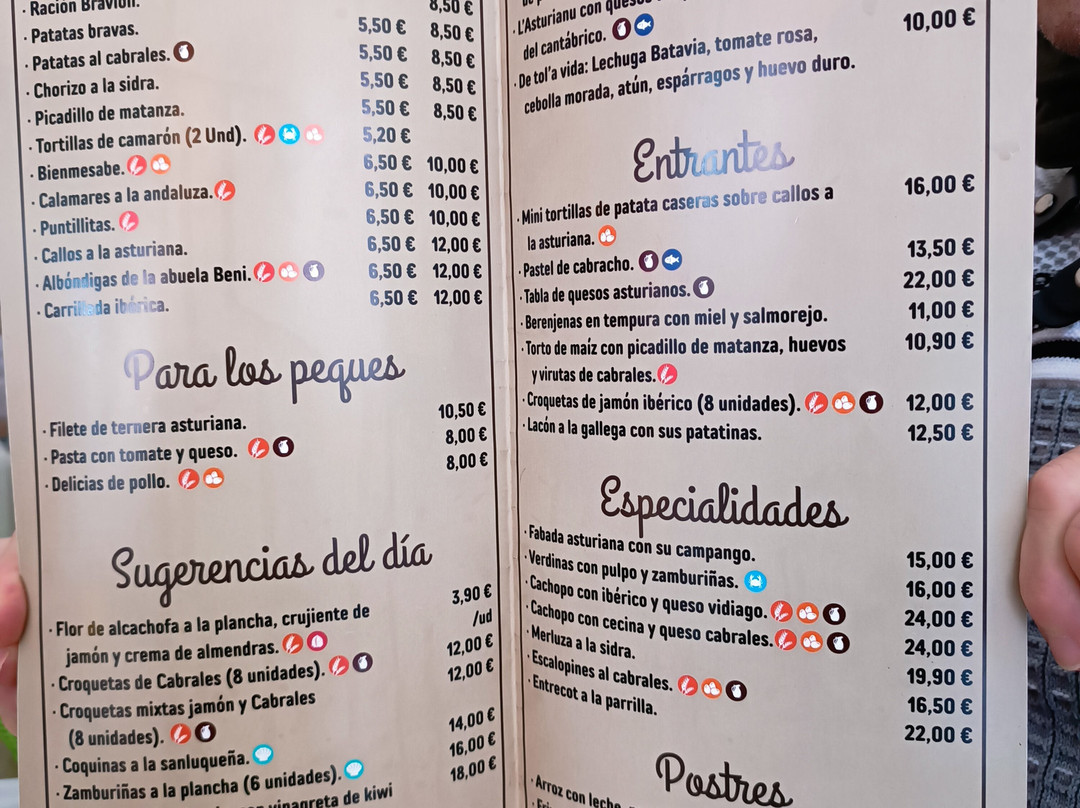 · Ración Bravión. 8,50 €
· Patatas bravas. 5,50 € 8,50 €
· Patatas al cabrales. 5,50 € 8,50 €
· Chorizo a la sidra. 5,50 € 8,50 €
· Picadillo de matanza. 5,50 € 8,50 €
· Tortillas de camarón (2 Und). 5,20 €
· Bienmesabe. 6,50 € 10,00 €
· Calamares a la andaluza. 6,50 € 10,00 €
· Puntillitas. 6,50 € 10,00 €
· Callos a la asturiana. 6,50 € 12,00 €
· Albóndigas de la abuela Beni. 6,50 € 12,00 €
· Carrillada ibérica. 6,50 € 12,00 €
Para los peques
· Filete de ternera asturiana. 10,50 €
· Pasta con tomate y queso. 8,00 €
· Delicias de pollo. 8,00 €
Sugerencias del día
· Flor de alcachofa a la plancha, crujiente de 3,90 €
jamón y crema de almendras. /ud
· Croquetas de Cabrales (8 unidades). 12,00 €
· Croquetas mixtas jamón y Cabrales 12,00 €
(8 unidades).
· Coquinas a la sanluqueña. 14,00 €
· Zamburiñas a la plancha (6 unidades). 16,00 €
vinagreta de kiwi 18,00 €
· L'Asturianu con
del cantábrico. 10,00 €
· De tol'a vida: Lechuga Batavia, tomate rosa,
cebolla morada, atún, espárragos y huevo duro.
Entrantes
· Mini tortillas de patata caseras sobre callos a 16,00 €
la asturiana.
· Pastel de cabracho. 13,50 €
· Tabla de quesos asturianos. 22,00 €
· Berenjenas en tempura con miel y salmorejo. 11,00 €
· Torto de maíz con picadillo de matanza, huevos 10,90 €
y virutas de cabrales.
· Croquetas de jamón ibérico (8 unidades). 12,00 €
· Lacón a la gallega con sus patatinas. 12,50 €
Especialidades
· Fabada asturiana con su campango. 15,00 €
· Verdinas con pulpo y zamburiñas. 16,00 €
· Cachopo con ibérico y queso vidiago. 24,00 €
· Cachopo con cecina y queso cabrales. 24,00 €
· Merluza a la sidra. 19,90 €
· Escalopines al cabrales. 16,50 €
· Entrecot a la parrilla. 22,00 €
Postres
· Arroz con leche